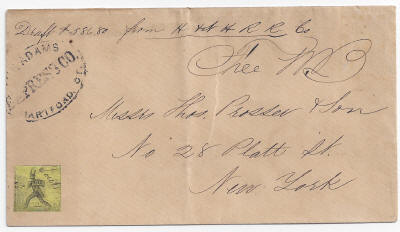 Draft $586.80 from H & N H R R Co
ADAMS
EXPRESS CO.
HARTFORD
Free
Messrs Thos. Prosser & Son
No 28 Platt St.
New York